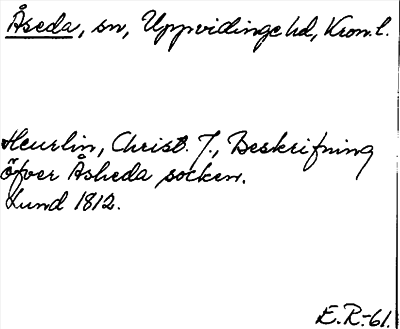 Åseda, sn, Uppvidinge hd, Kron. l.
Heurlin, Christ. J., Beskrifning
öfver Åsheda socken.
Lund 1812.
E.R.-61.